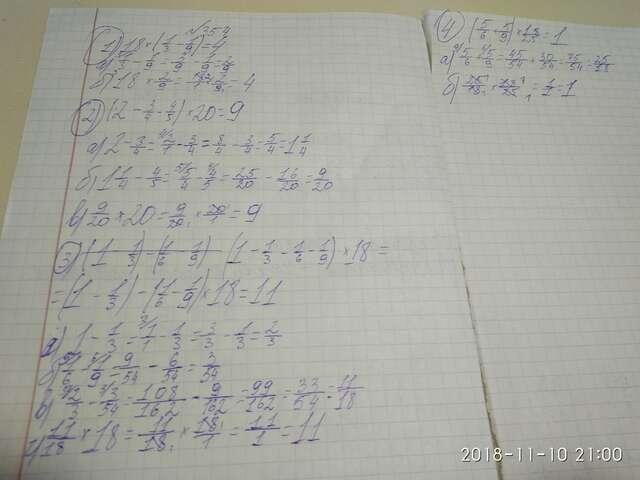 1) 18×(1/3-1/9)=4
а) 1/3-1/9=3/9-1/9=2/9
б) 18×2/9=18/1×2/9=4
2) (2-3/4-4/5)×20=9
а) 2-3/4=2/1-3/4=8/4-3/4=5/4=1 1/4
б) 1 1/4-4/5=5/4-4/5=25/20-16/20=9/20
в) 9/20×20=9/20×20/1=9
3) (1-1/3)-(1/6-1/9) (1-1/3-1/6-1/9)×18=
=(1-1/3)-(1/6-1/9)×18=11
а) 1-1/3=1/1-1/3=3/3-1/3=2/3
б) 1/6-1/9=9/54-6/54=3/54
в) 2/3-3/54=108/162-9/162=99/162=33/54=11/18
г) 11/18×18=11/18×18/1=11/1=11
4) (5/6+5/9)×18/25=1
а) 5/6+5/9=45/54+30/54=75/54=25/18
б) 25/18×18/25=1/1=1
2018-11-10 21:00